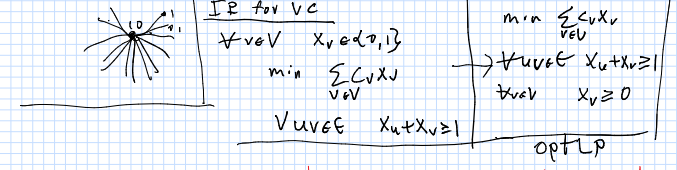 10
1
1
IP for VC
∀ v∈V   x_v ∈ {0,1}
min ∑_{v∈V} C_v x_v
∀ uv∈E   x_u + x_v ≥ 1
min ∑_{v∈V} C_v x_v
→ ∀ uv∈E   x_u + x_v ≥ 1
∀v∈V   x_v ≥ 0
opt LP